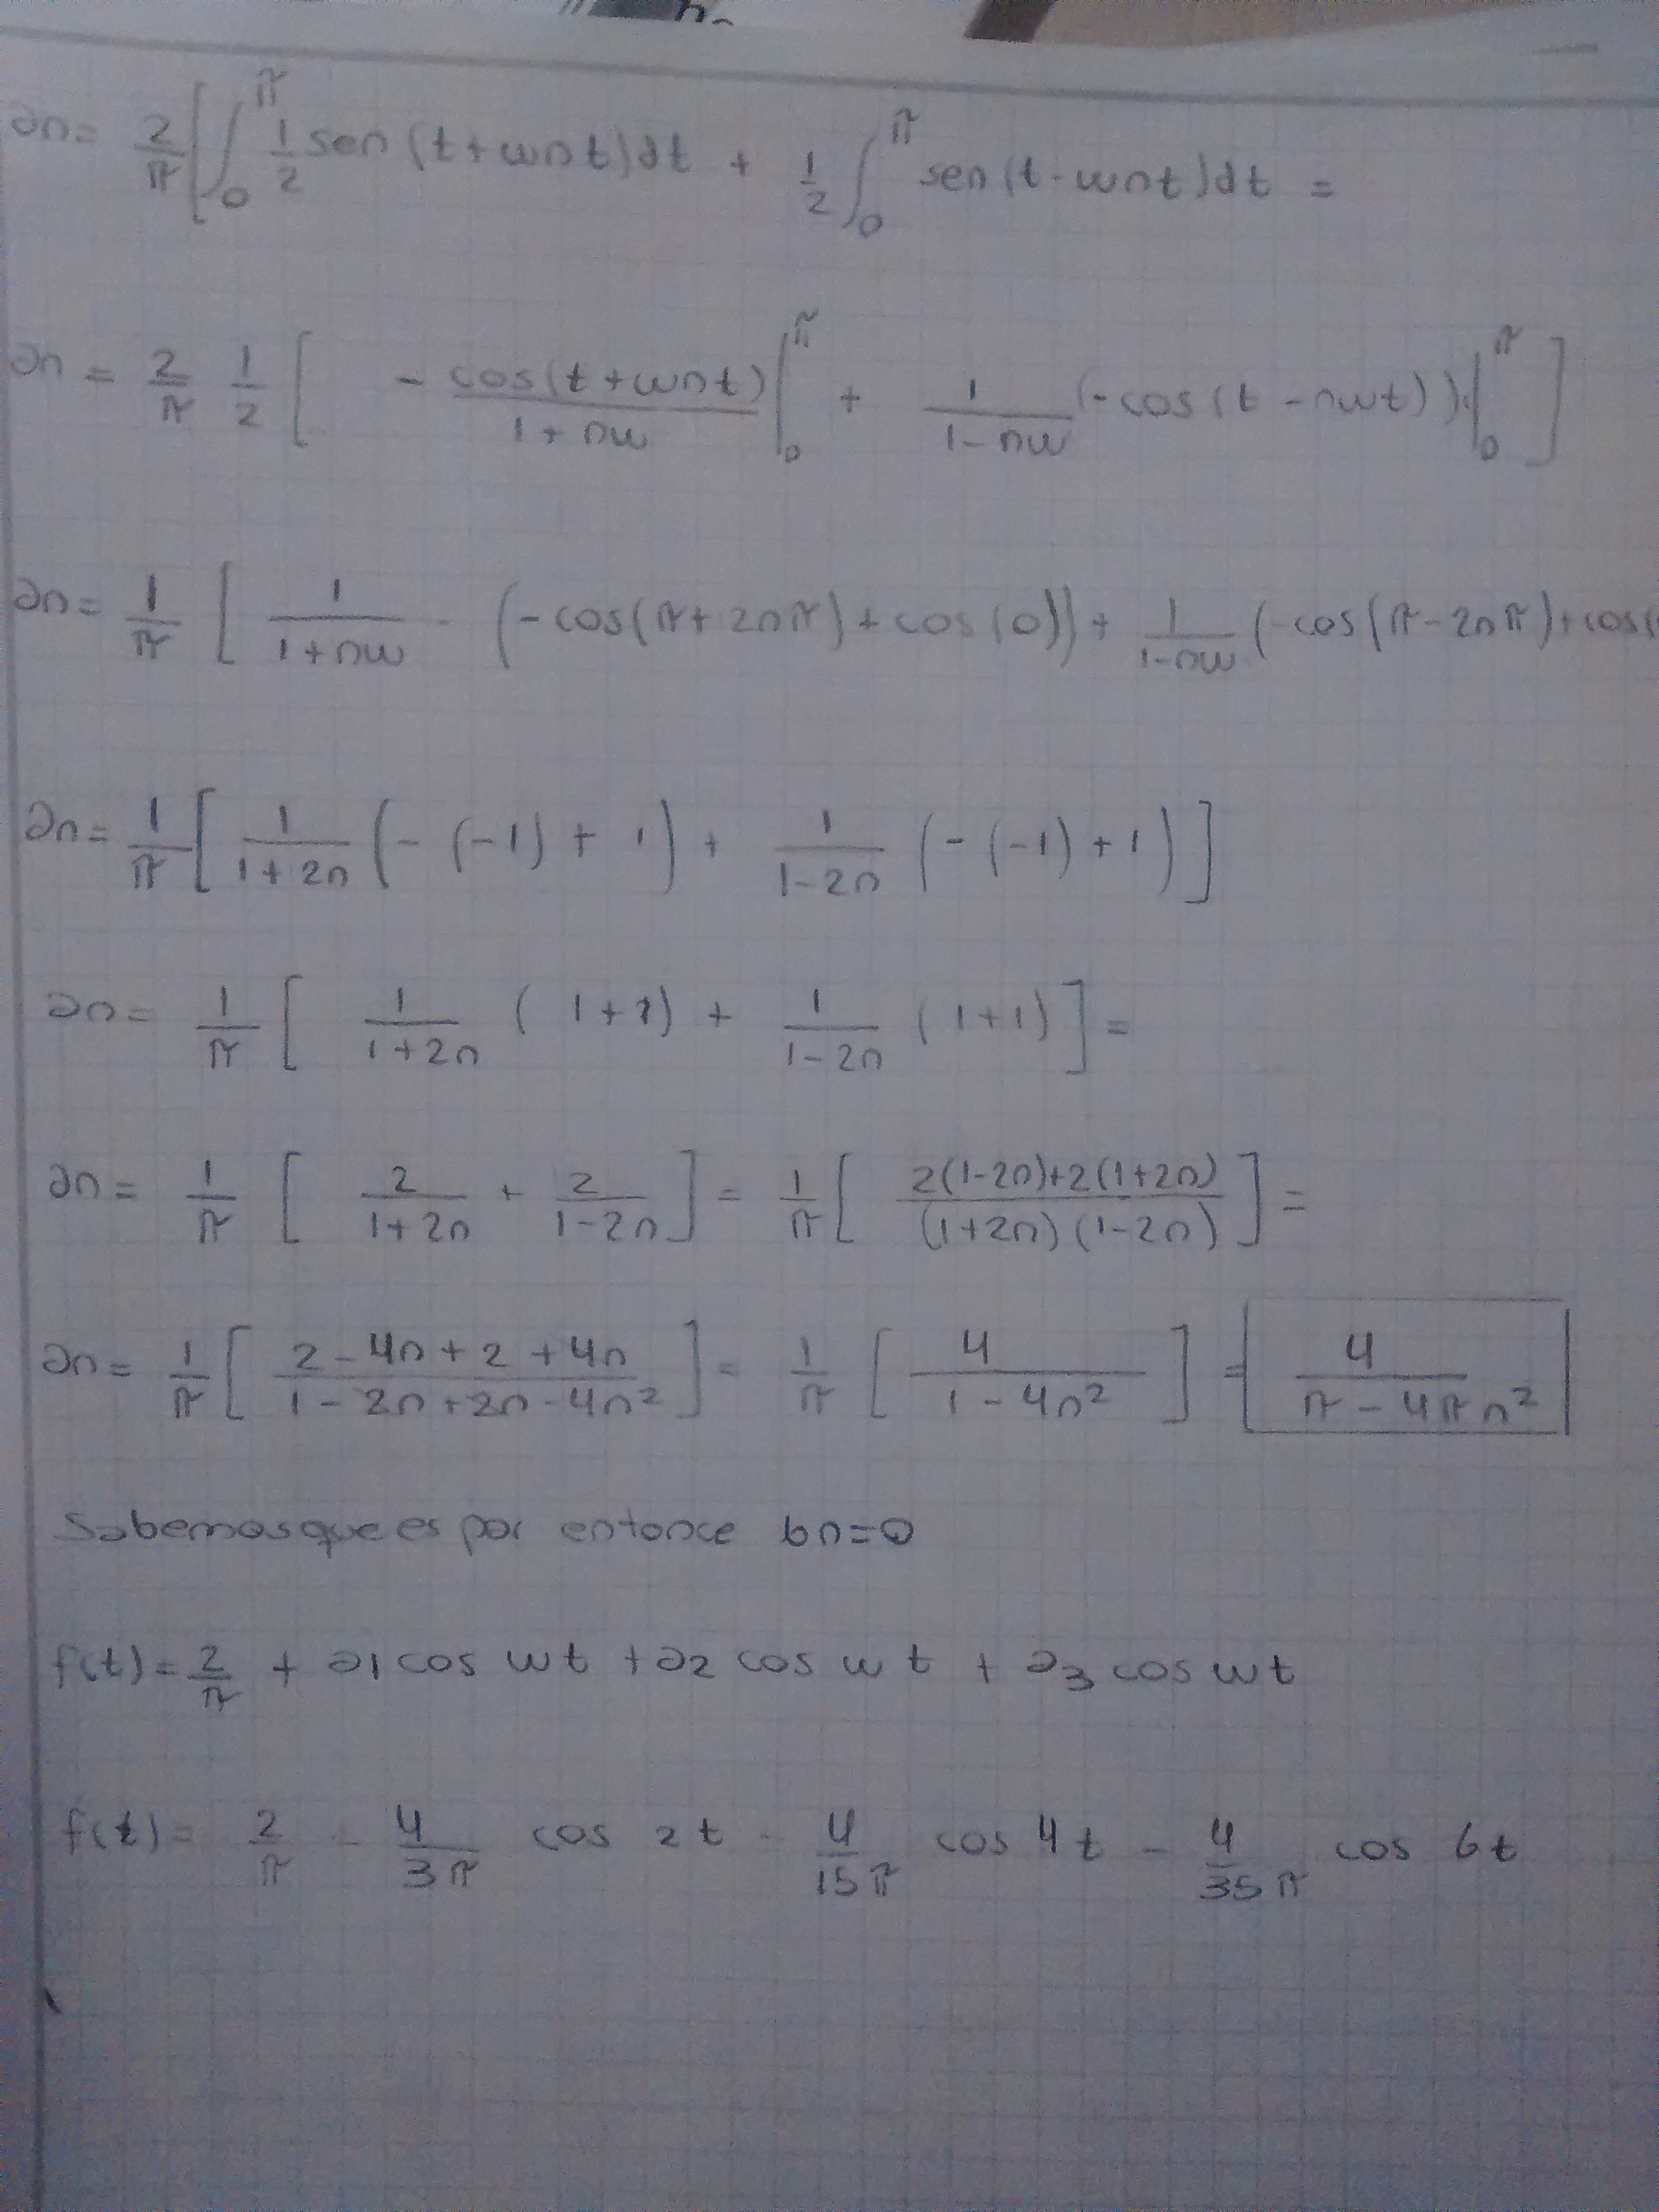 an= 2/π [∫₀^π 1/2 sen (t+wnt)dt + 1/2 ∫₀^π sen(t-wnt)dt =
an = 2/π 1/2 [ - cos(t+wnt)/(1+nw) |₀^π + 1/(1-nw) (-cos(t-nwt)) |₀^π ]
an= 1/π [ 1/(1+nw) - (-cos(π+2nπ)+cos(0)) + 1/(1-nw) (-cos(π-2nπ)+cos(
an= 1/π [ 1/(1+2n) (-(-1)+1) + 1/(1-2n) (-(-1)+1) ]
an= 1/π [ 1/(1+2n) (1+1) + 1/(1-2n) (1+1) ] =
an= 1/π [ 2/(1+2n) + 2/(1-2n) ] = 1/π [ (2(1-2n)+2(1+2n))/((1+2n)(1-2n)) ] =
an= 1/π [ (2-4n+2+4n)/(1-2n+2n-4n²) ] = 1/π [ 4/(1-4n²) ] = 4/(π-4πn²)
Sabemos que es par entonce bn=0
f(t)= 2/π + a1 cos wt + a2 cos wt + a3 cos wt
f(t)= 2/π - 4/3π cos 2t - 4/15π cos 4t - 4/35π cos 6t